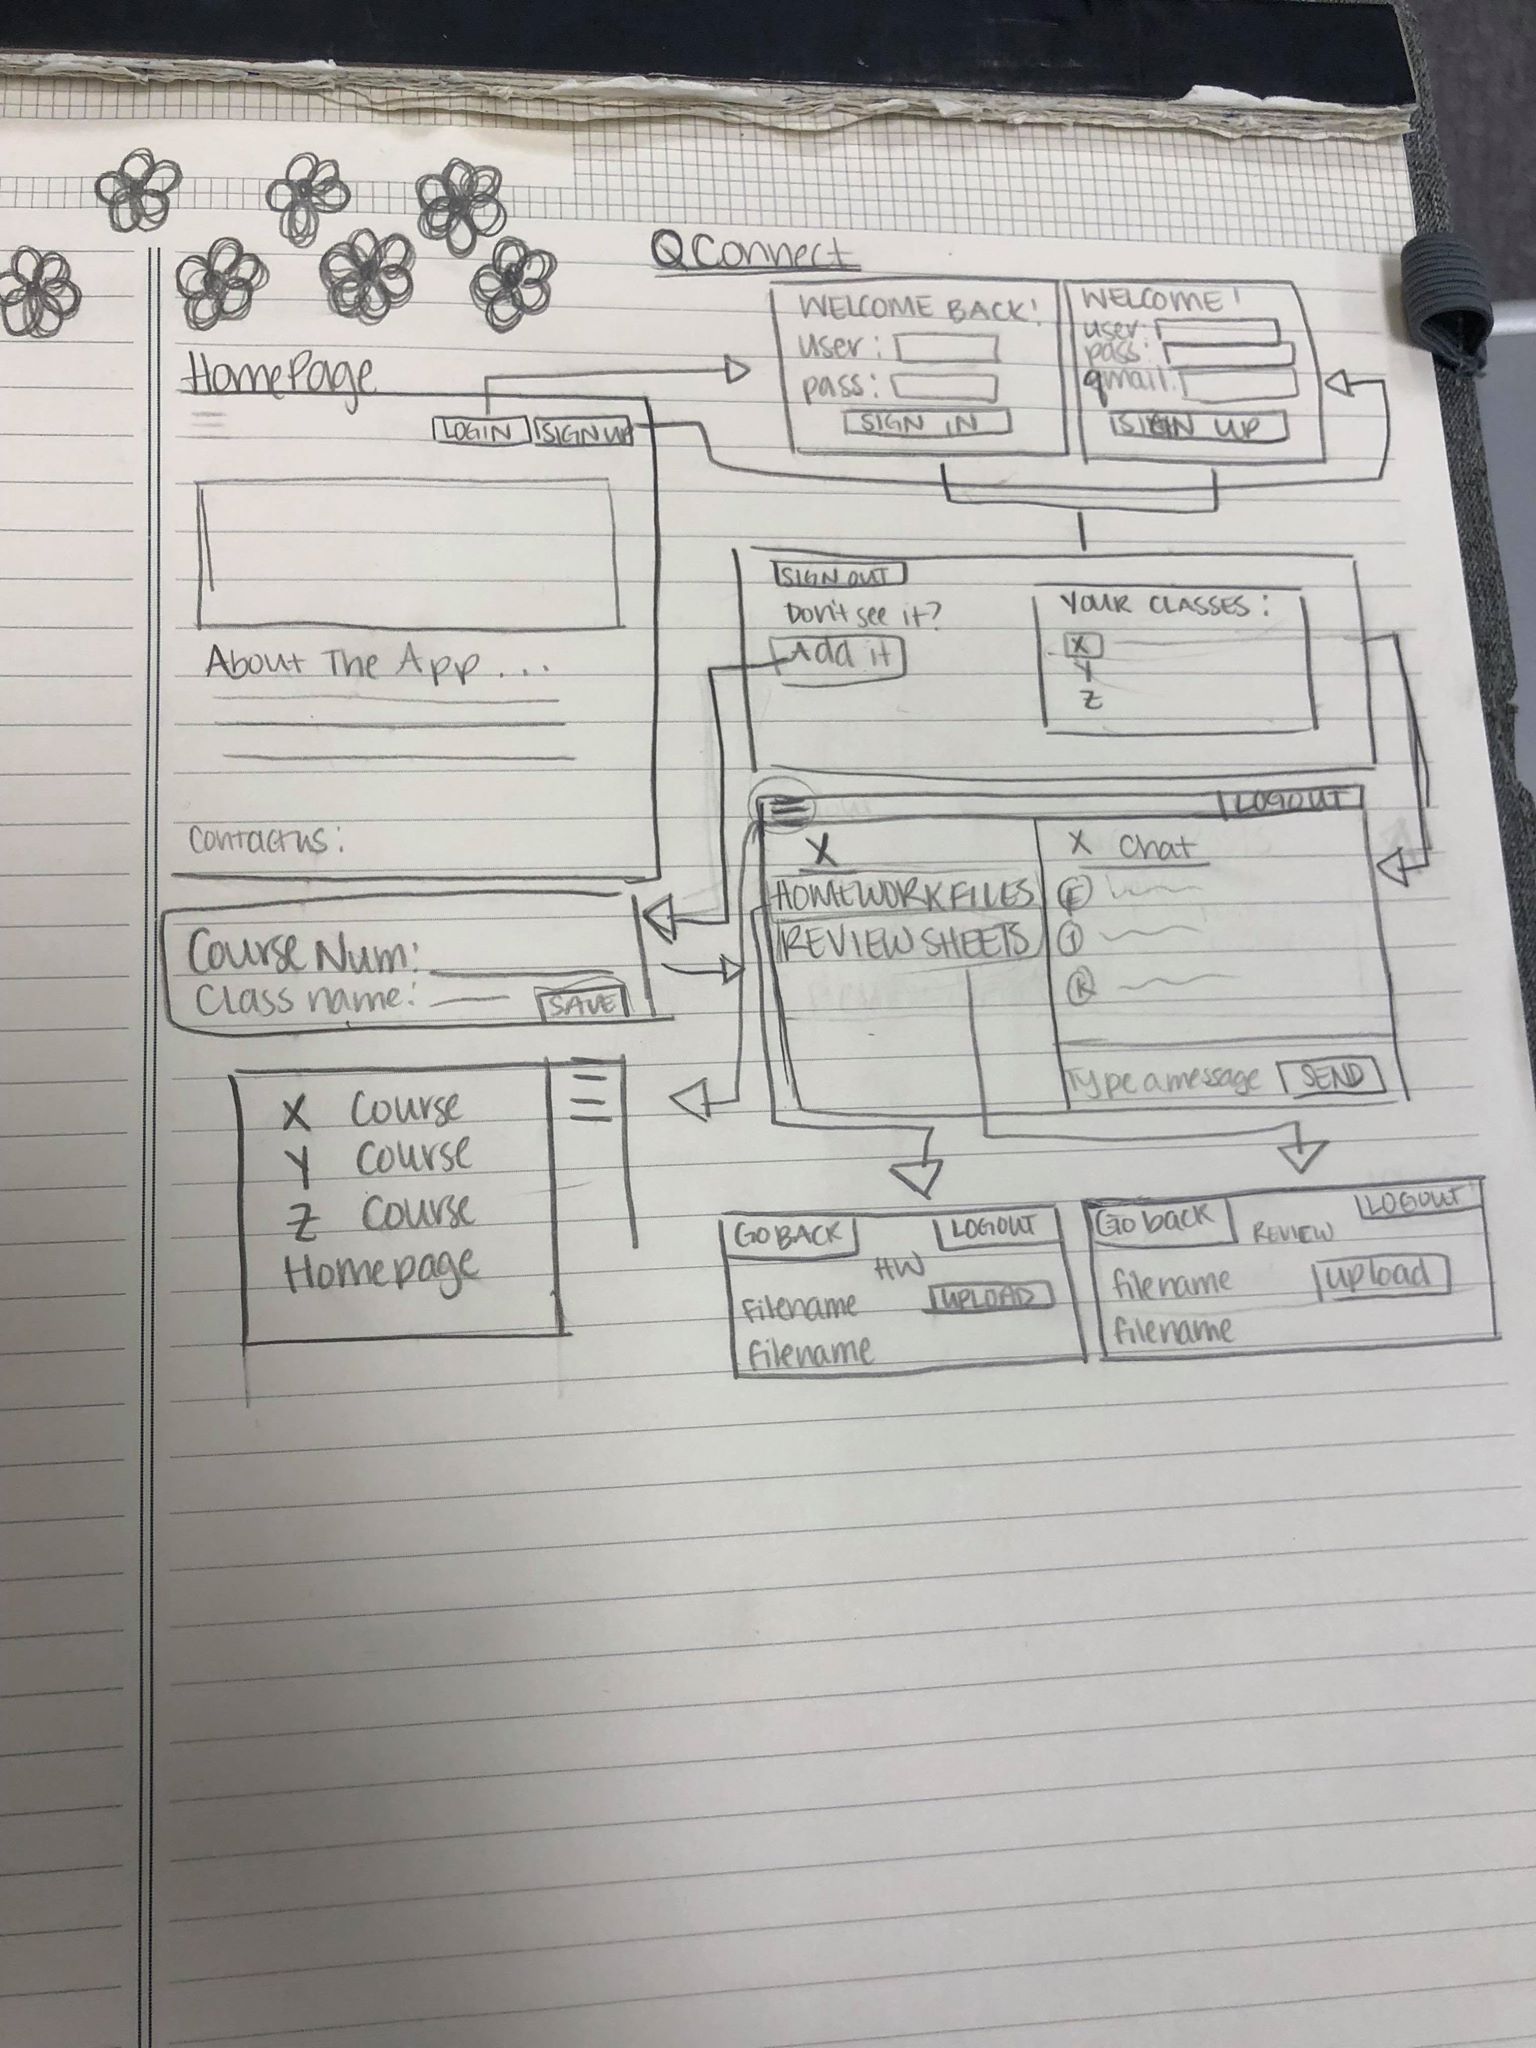 QConnect
HomePage
LOGIN
SIGN UP
About The App ...
Contact us:
WELCOME BACK!
user:
pass:
SIGN IN
WELCOME!
user:
pass:
qmail:
SIGN UP
SIGN OUT
Don't see it?
Add it
YOUR CLASSES:
X
Y
Z
Course Num:
Class name:
SAVE
LOGOUT
X
HOMEWORK FILES
REVIEW SHEETS
X Chat
E
J
K
Type a message
SEND
X Course
Y Course
Z Course
Homepage
GO BACK
LOGOUT
HW
filename
UPLOAD
filename
Go back
REVIEW
LOGOUT
filename
upload
filename